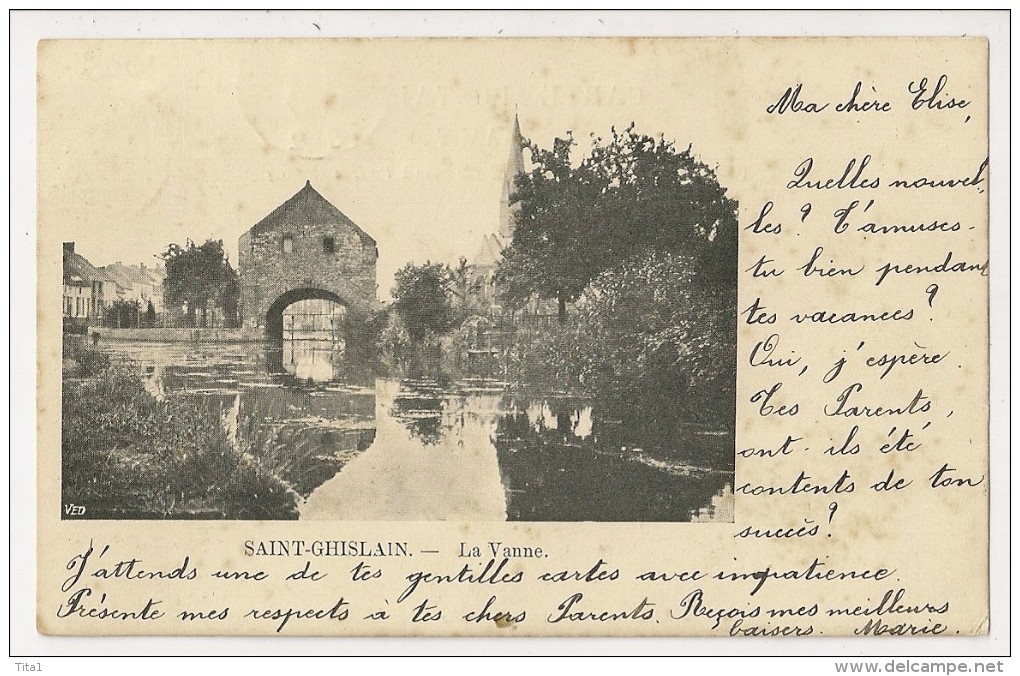 Ma chère Elise,
Quelles nouvel-
les ? T'amuses-
tu bien pendant
tes vacances ?
Oui, j'espère.
Tes Parents,
ont-ils été
contents de ton
succès ?
VED
SAINT-GHISLAIN. — La Vanne.
J'attends une de tes gentilles cartes avec impatience.
Présente mes respects à tes chers Parents. Reçois mes meilleurs
baisers. Marie.
Tita1
www.delcampe.net